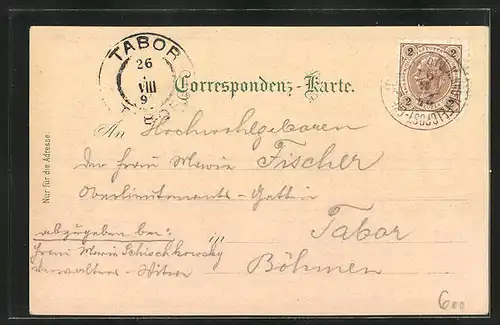 TABOR
26
VIII
9
Correspondenz-Karte.
2 2
FELDPOST
An Hochwohlgeboren
der Frau Marie Fischer
Oberlieutenants-Gattin
in Tabor
Böhmen
abzugeben bei:
Frau Marie Schischkowsky
Verwalters-Witwe
Nur für die Adresse.
600